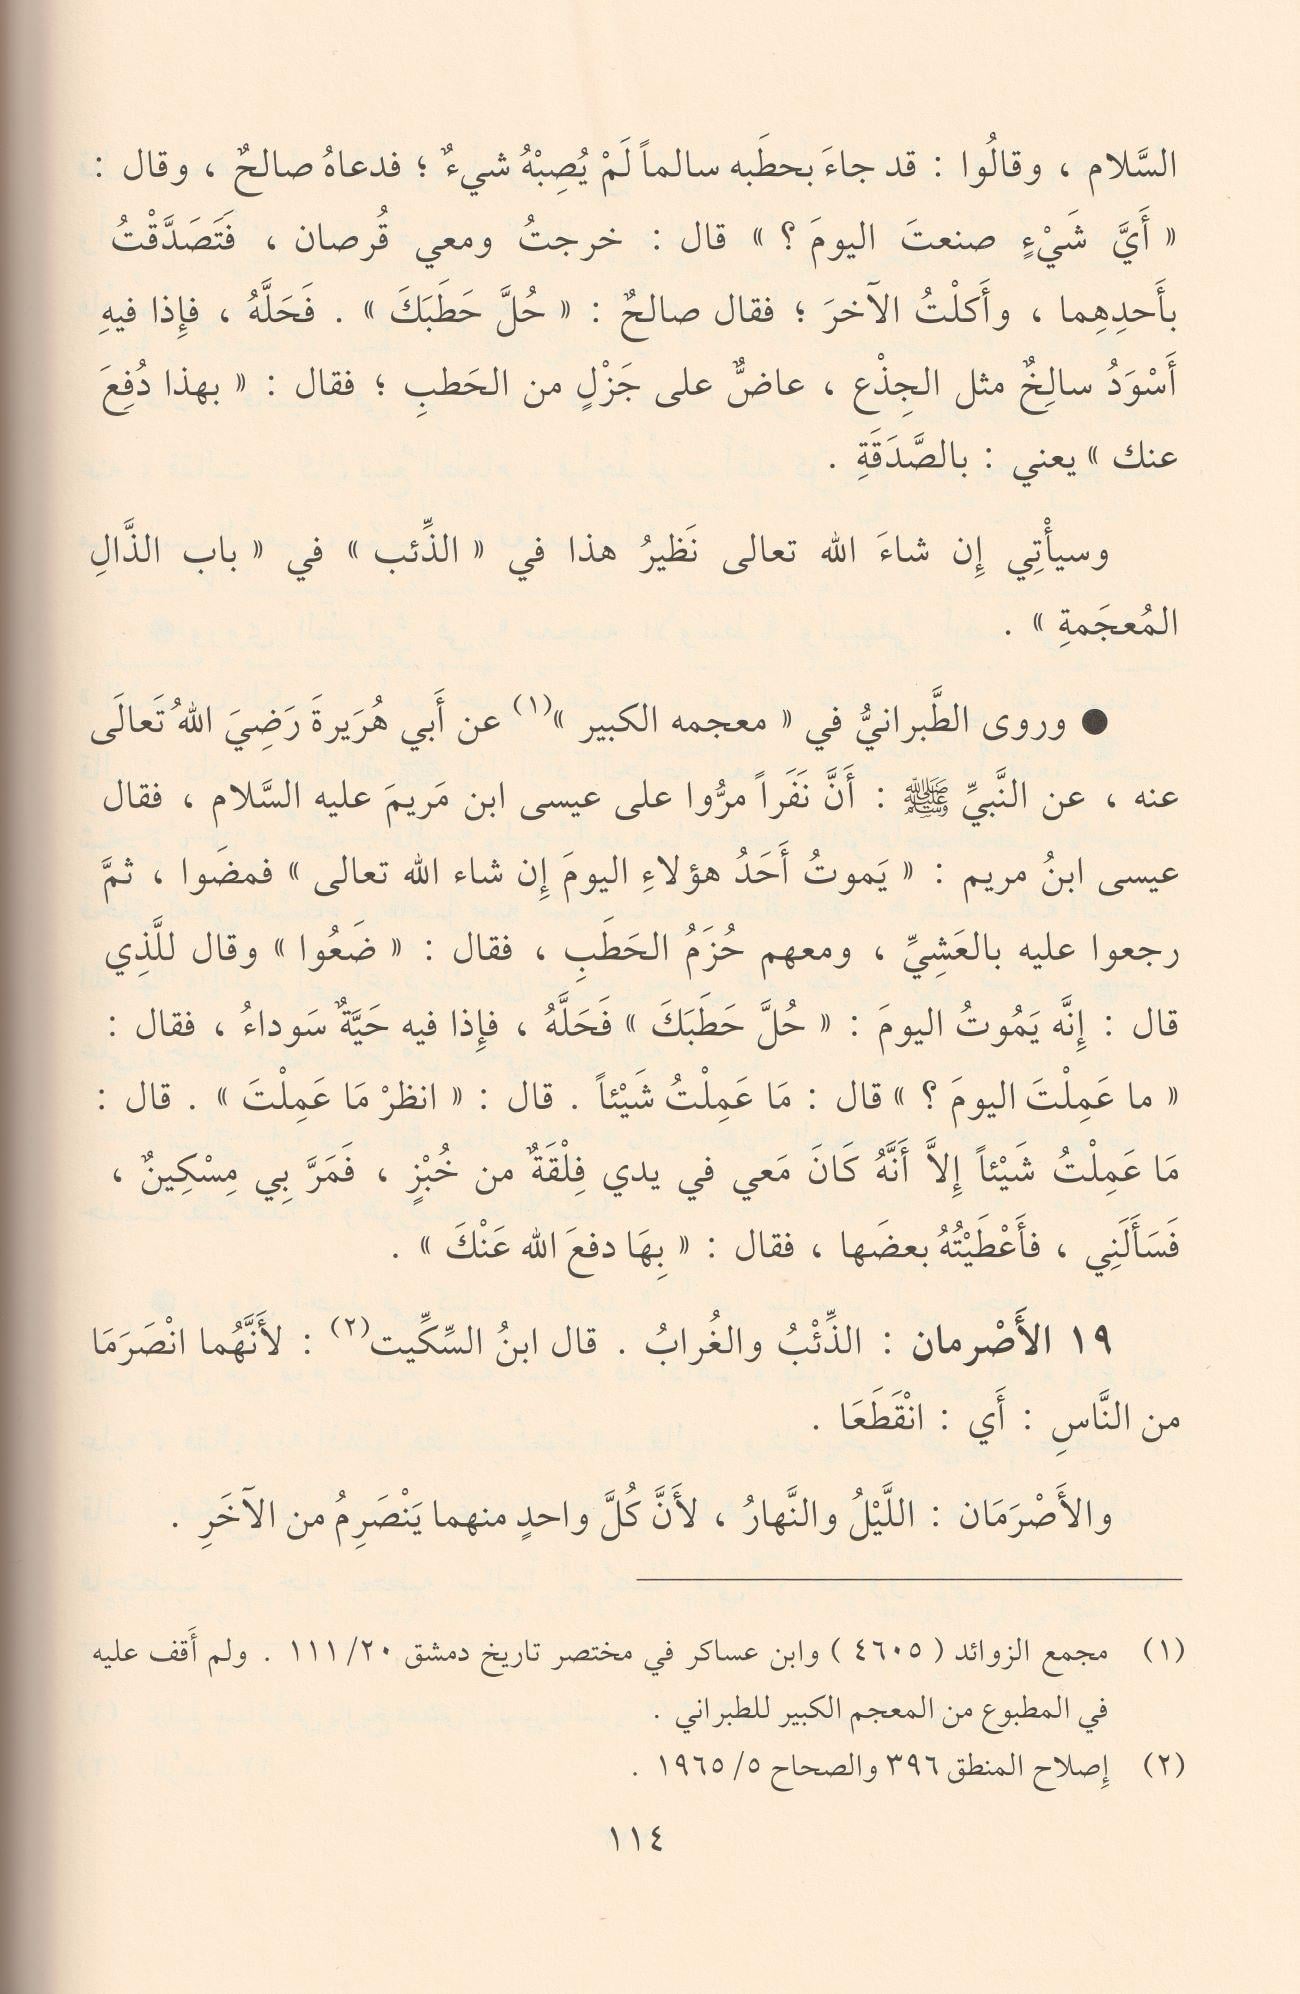 السَّلام ، وقالُوا : قد جاءَ بحطَبه سالماً لَمْ يُصِبْهُ شيءٌ ؛ فدعاهُ صالحٌ ، وقال :
« أَيَّ شَيْءٍ صنعتَ اليومَ ؟ » قال : خرجتُ ومعي قُرصان ، فَتَصَدَّقْتُ
بأَحدِهِما ، وأَكلْتُ الآخرَ ؛ فقال صالحٌ : « حُلَّ حَطَبَكَ » . فَحَلَّهُ ، فإِذا فيهِ
أَسْوَدُ سالِخٌ مثل الجِذْع ، عاضٌّ على جَزْلٍ من الحَطبِ ؛ فقال : « بهذا دُفِعَ
عنك » يعني : بالصَّدَقَةِ .
وسيأْتِي إِن شاءَ الله تعالى نَظيرُ هذا في « الذِّئب » في « باب الذَّالِ
المُعجَمةِ » .
● وروى الطَّبرانيُّ في « معجمه الكبير »(١) عن أَبي هُرَيرةَ رَضِيَ اللهُ تَعالَى
عنه ، عن النَّبيِّ ﷺ : أَنَّ نَفَراً مرُّوا على عيسى ابن مَريمَ عليه السَّلام ، فقال
عيسى ابنُ مريم : « يَموتُ أَحَدُ هؤلاءِ اليومَ إِن شاء الله تعالى » فمضَوا ، ثمَّ
رجعوا عليه بالعَشِيِّ ، ومعهم حُزَمُ الحَطَبِ ، فقال : « ضَعُوا » وقال للَّذِي
قال : إِنَّه يَمُوتُ اليومَ : « حُلَّ حَطَبَكَ » فَحَلَّهُ ، فإِذا فيه حَيَّةٌ سَوداءُ ، فقال :
« ما عَمِلْتَ اليومَ ؟ » قال : مَا عَمِلْتُ شَيْئاً . قال : « انظرْ مَا عَمِلْتَ » . قال :
مَا عَمِلْتُ شَيْئاً إِلاَّ أَنَّهُ كَانَ مَعي في يدي فِلْقَةٌ من خُبْزٍ ، فَمَرَّ بِي مِسْكِينٌ ،
فَسَأَلَنِي ، فأَعْطَيْتُهُ بعضَها ، فقال : « بِهَا دفعَ الله عَنْكَ » .
١٩ الأَصْرمان : الذِّئْبُ والغُرابُ . قال ابنُ السِّكِّيت(٢) : لأَنَّهُما انْصَرَمَا
من النَّاسِ : أَي : انْقَطَعَا .
والأَصْرَمَان : اللَّيْلُ والنَّهارُ ، لأَنَّ كُلَّ واحدٍ منهما يَنْصَرِمُ من الآخَرِ .
(١) مجمع الزوائد ( ٤٦٠٥ ) وابن عساكر في مختصر تاريخ دمشق ٢٠/ ١١١ . ولم أَقف عليه
في المطبوع من المعجم الكبير للطبراني .
(٢) إِصلاح المنطق ٣٩٦ والصحاح ٥/ ١٩٦٥ .
١١٤